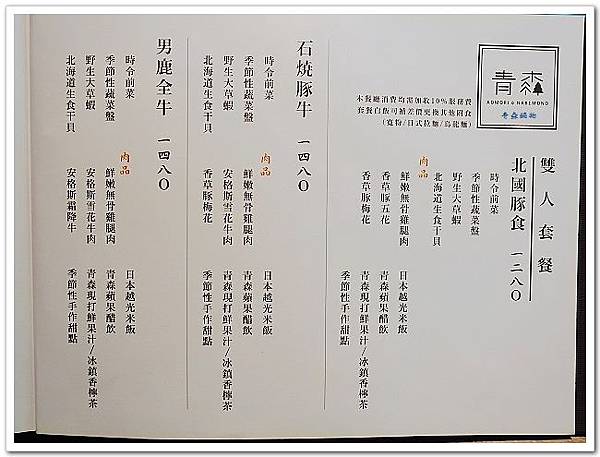 青森
AOMORI & HAREMONO
青森鍋物
本餐廳消費均需加收10%服務費
套餐白飯可補差價更換其他副食
(寬粉/日式拉麵/烏龍麵)
雙人套餐
北國豚食 一二八〇
時令前菜
季節性蔬菜盤
野生大草蝦
北海道生食干貝
肉品
鮮嫩無骨雞腿肉
香草豚五花
香草豚梅花
日本越光米飯
青森蘋果醋飲
青森現打鮮果汁/冰鎮香檸茶
季節性手作甜點
石燒豚牛 一四八〇
時令前菜
季節性蔬菜盤
野生大草蝦
北海道生食干貝
肉品
鮮嫩無骨雞腿肉
安格斯雪花牛肉
香草豚梅花
日本越光米飯
青森蘋果醋飲
青森現打鮮果汁/冰鎮香檸茶
季節性手作甜點
男鹿全牛 一四八〇
時令前菜
季節性蔬菜盤
野生大草蝦
北海道生食干貝
肉品
鮮嫩無骨雞腿肉
安格斯雪花牛肉
安格斯霜降牛
日本越光米飯
青森蘋果醋飲
青森現打鮮果汁/冰鎮香檸茶
季節性手作甜點